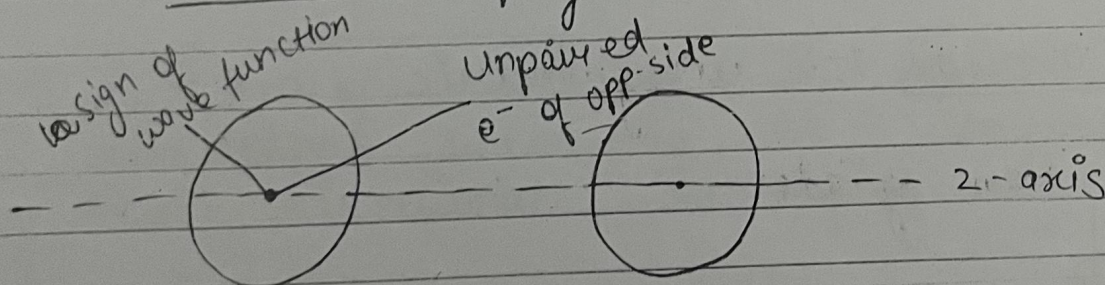 sign of
wave function
Unpaired
e⁻ of opp. side
z - axis